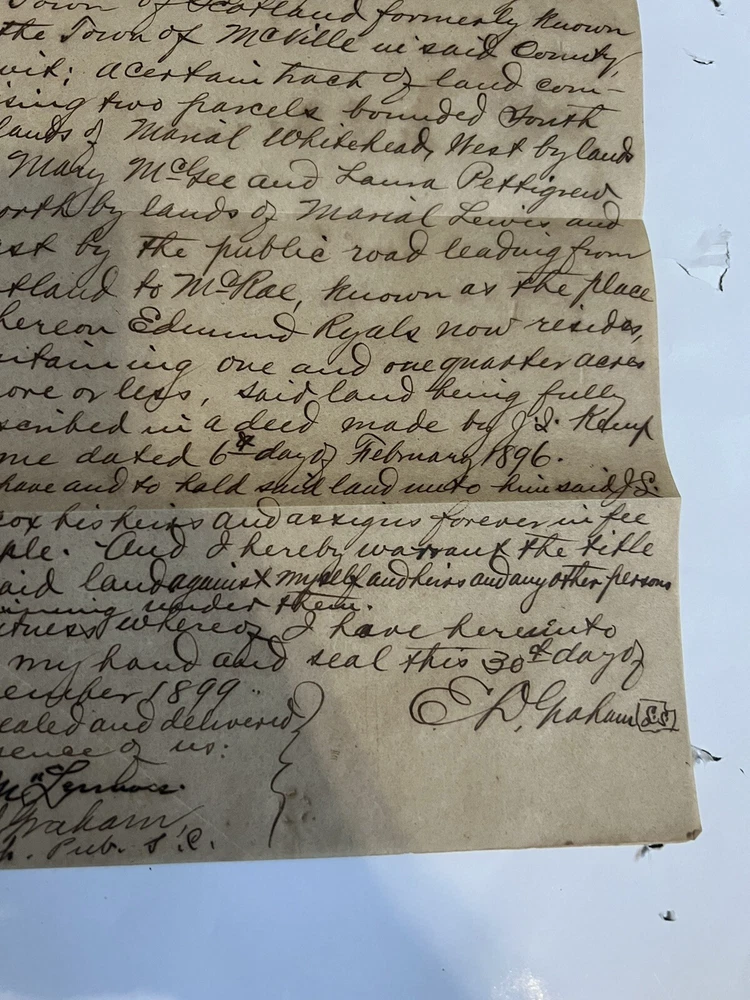 Town of Scotland formerly known
the Town of McVille in said County,
wit; a certain tract of land com-
ising two parcels bounded South
lands of Marial Whitehead, West by lands
Mary McGee and Laura Pettigrew
orth by lands of Marial Lewis and
ast by the public road leading from
tland to McRae, known as the place
hereon Edmund Ryals now resides,
ntaining one and one quarter acres
ore or less, said land being fully
scribed in a deed made by J. S. Kemp
me dated 6th day of February 1896.
have and to hold said land unto him said J. S.
cox his heirs and assigns forever in fee
ple. And I hereby warrant the title
aid land against myself and heirs and any other persons
iming under them.
itness whereof I have hereunto
my hand and seal this 30th day of
ember 1899
E. D. Graham L.S.
ealed and delivered
sence of us:
Graham
Pub. S. C.